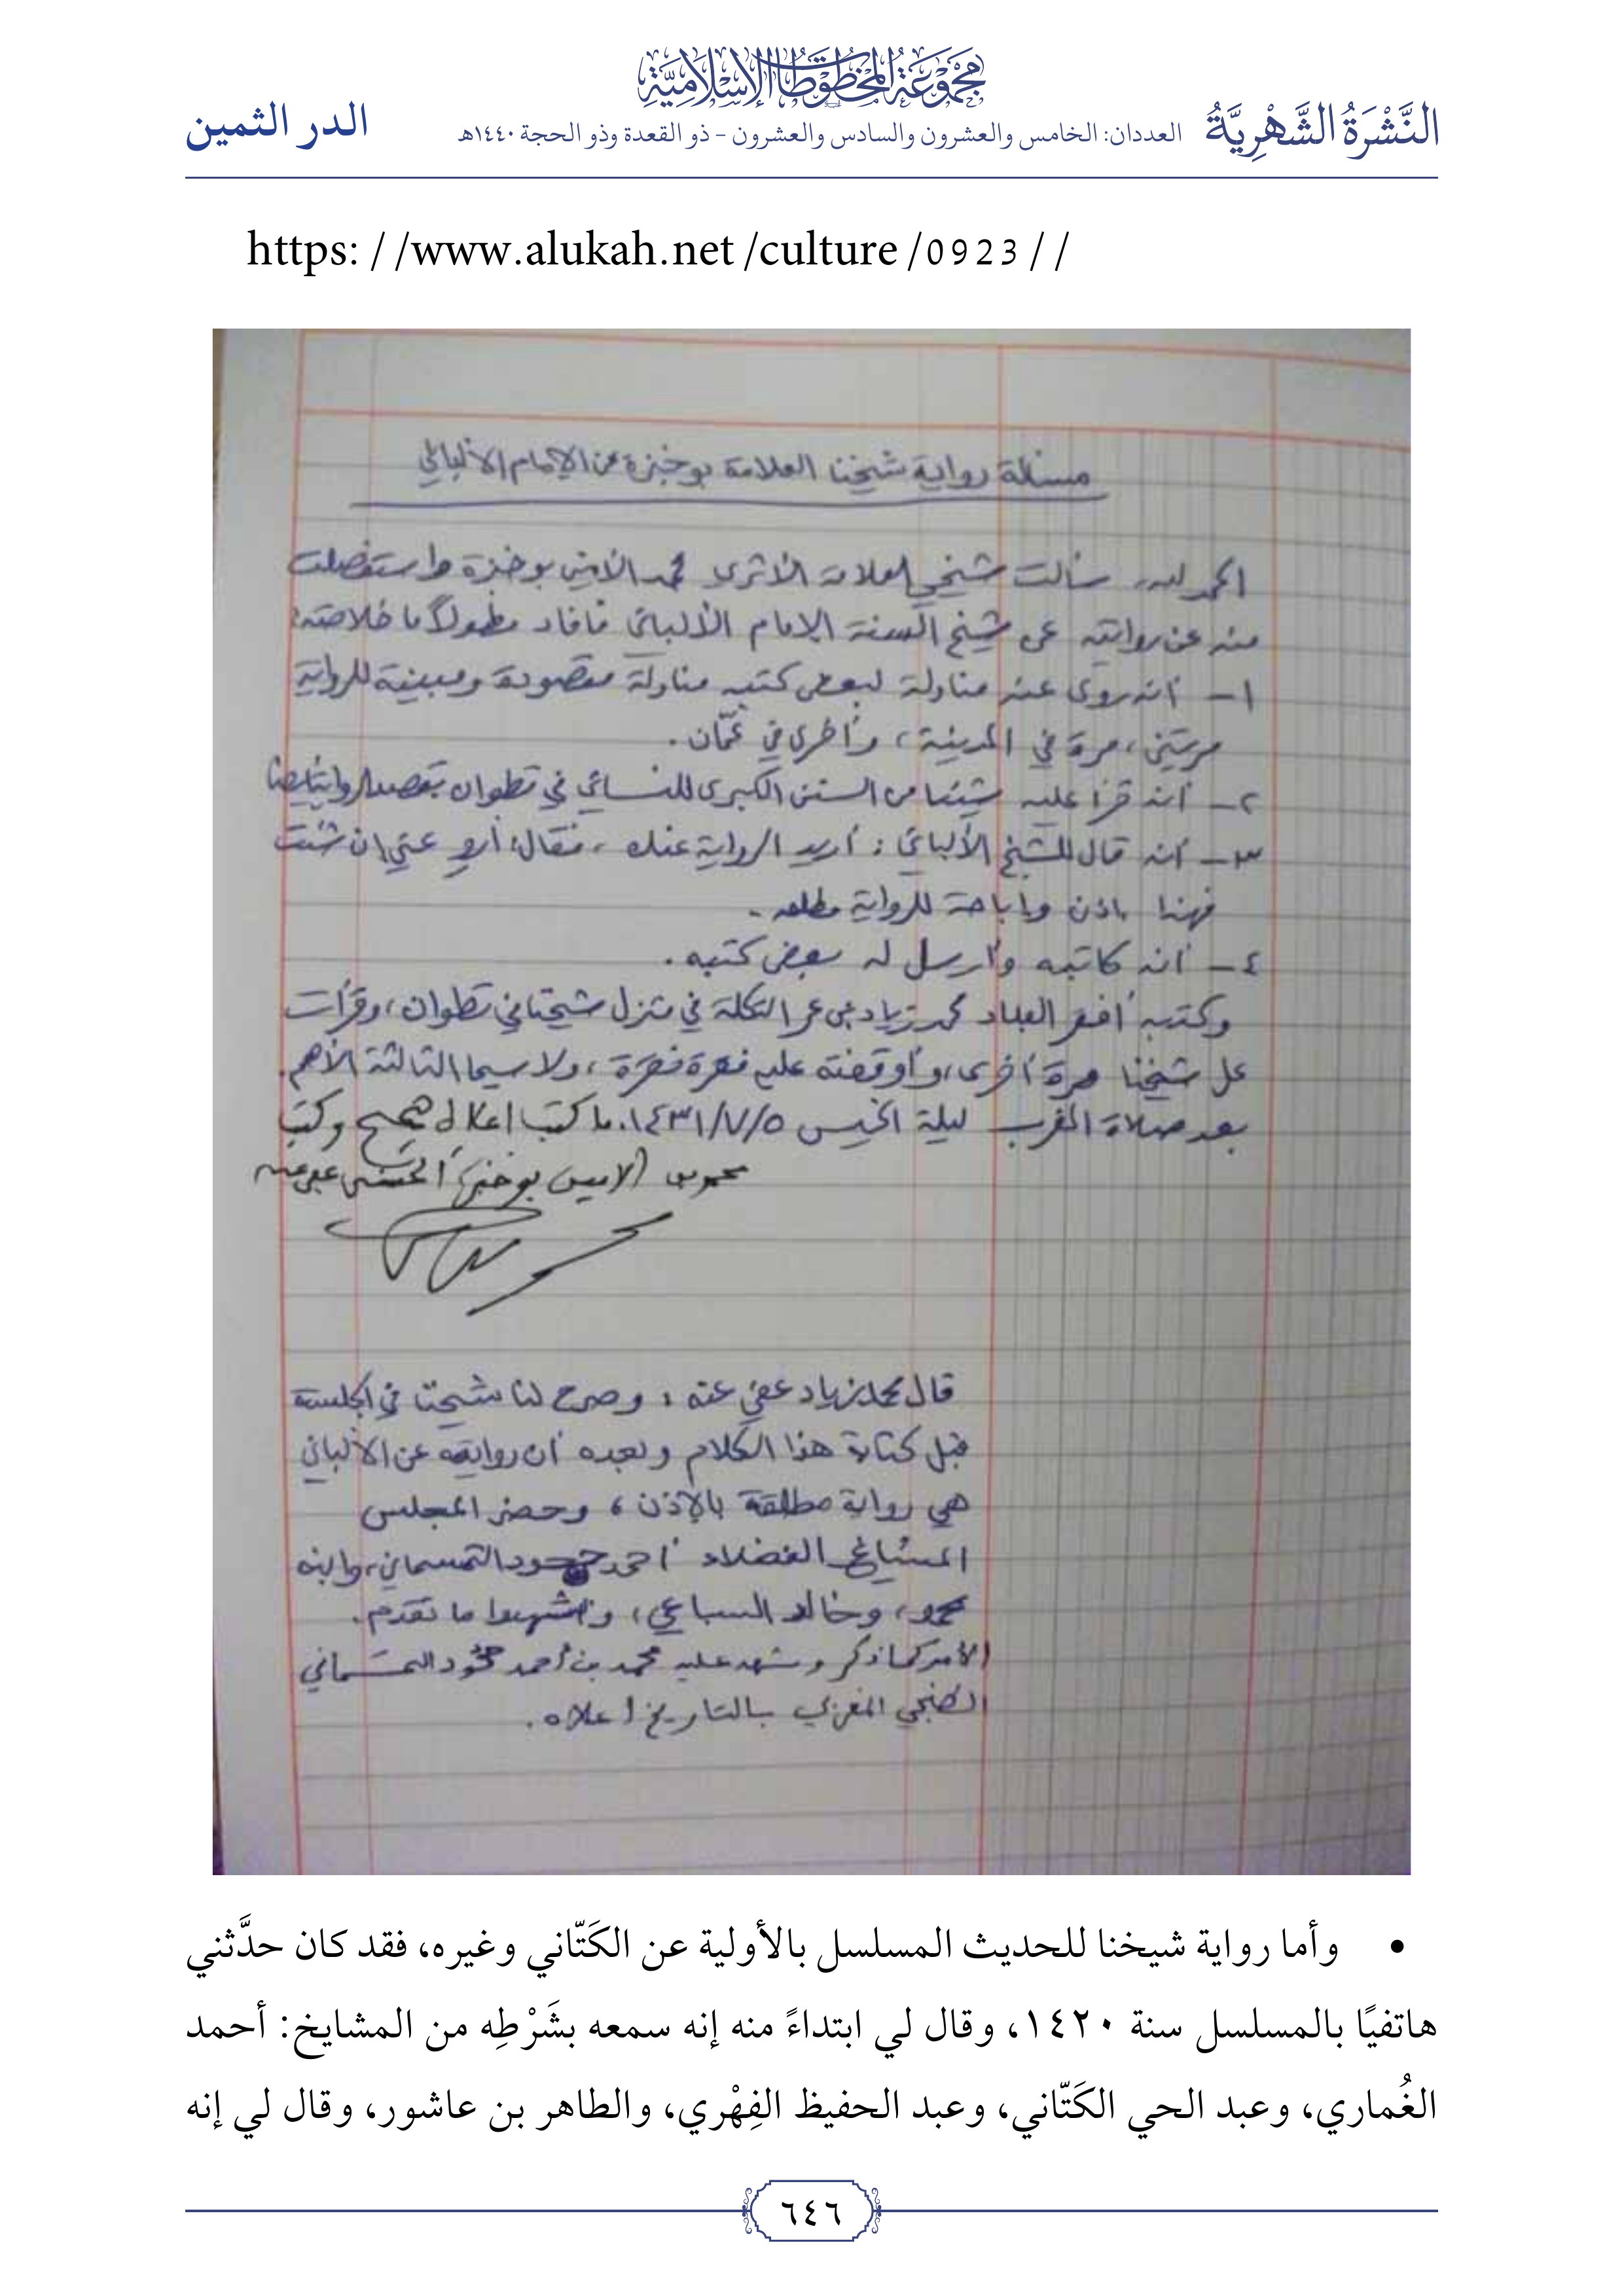 مجموعة المخطوطات الإسلامية
النَّشْرَةُ الشَّهْرِيَّةُ العددان: الخامس والعشرون والسادس والعشرون - ذو القعدة وذو الحجة ١٤٤٠هـ الدر الثمين
https: / /www.alukah.net /culture /0923 / /
مسئلة رواية شيخنا العلامة بوخبزة عن الإمام الألباني
الحمد لله، سألت شيخي العلامة الأثري محمد الأمين بوخبزة واستفصلت
منه عن روايته عن شيخ السنة الإمام الألباني فأفاد مطولاً ما خلاصته:
١- أنه روى عنه مناولة لبعض كتبه مناولة مقصودة ومبينة للرواية
مرتين، مرة في المدينة، وأخرى في عمّان.
٢- أنه قرأ عليه شيئا من السنن الكبرى للنسائي في تطوان بقصد الرواية أيضا
٣- أنه قال للشيخ الألباني: أريد الرواية عنك، فقال: أروِ عني إن شئت
فهذا إذن وإباحة للرواية مطلقه.
٤- أنه كاتبه وأرسل له بعض كتبه.
وكتبه أفقر العباد محمد زياد بن عمر التكلة في منزل شيخنا في تطوان، وقرأت
على شيخنا مرة أخرى، وأوقفته عليه فقرة فقرة، ولا سيما الثالثة الأهم.
بعد صلاة المغرب ليلة الخميس ١٤٣١/٧/٥. ما كتب أعلاه صحيح وكتب
محمد الأمين بوخبزة الحسني عفي عنه
قال محمد زياد عفي عنه: وصرح لنا شيخنا في الجلسة
قبل كتابة هذا الكلام وبعده أن روايته عن الألباني
هي رواية مطلقة بالإذن، وحضر المجلس
المشايخ الفضلاء أحمد حمود التمسماني، وابنه
محمد، وخالد السباعي، وشهدوا ما تقدم.
الأمر كما ذكر وشهد عليه محمد بن أحمد حمّود التمسماني
الطنجي المغربي بالتاريخ أعلاه.
• وأما رواية شيخنا للحديث المسلسل بالأولية عن الكَتّاني وغيره، فقد كان حدَّثني
هاتفيًا بالمسلسل سنة ١٤٢٠، وقال لي ابتداءً منه إنه سمعه بشَرْطِه من المشايخ: أحمد
الغُماري، وعبد الحي الكَتّاني، وعبد الحفيظ الفِهْري، والطاهر بن عاشور، وقال لي إنه
٦٤٦